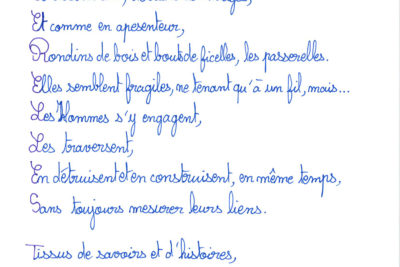 Et comme en apesenteur,
Rondins de bois et bouts de ficelles, les passerelles.
Elles semblent fragiles, ne tenant qu'à un fil, mais...
Les Hommes s'y engagent,
Les traversent,
En détruisent et en construisent, en même temps,
Sans toujours mesurer leurs liens.
Tissus de savoirs et d'histoires,